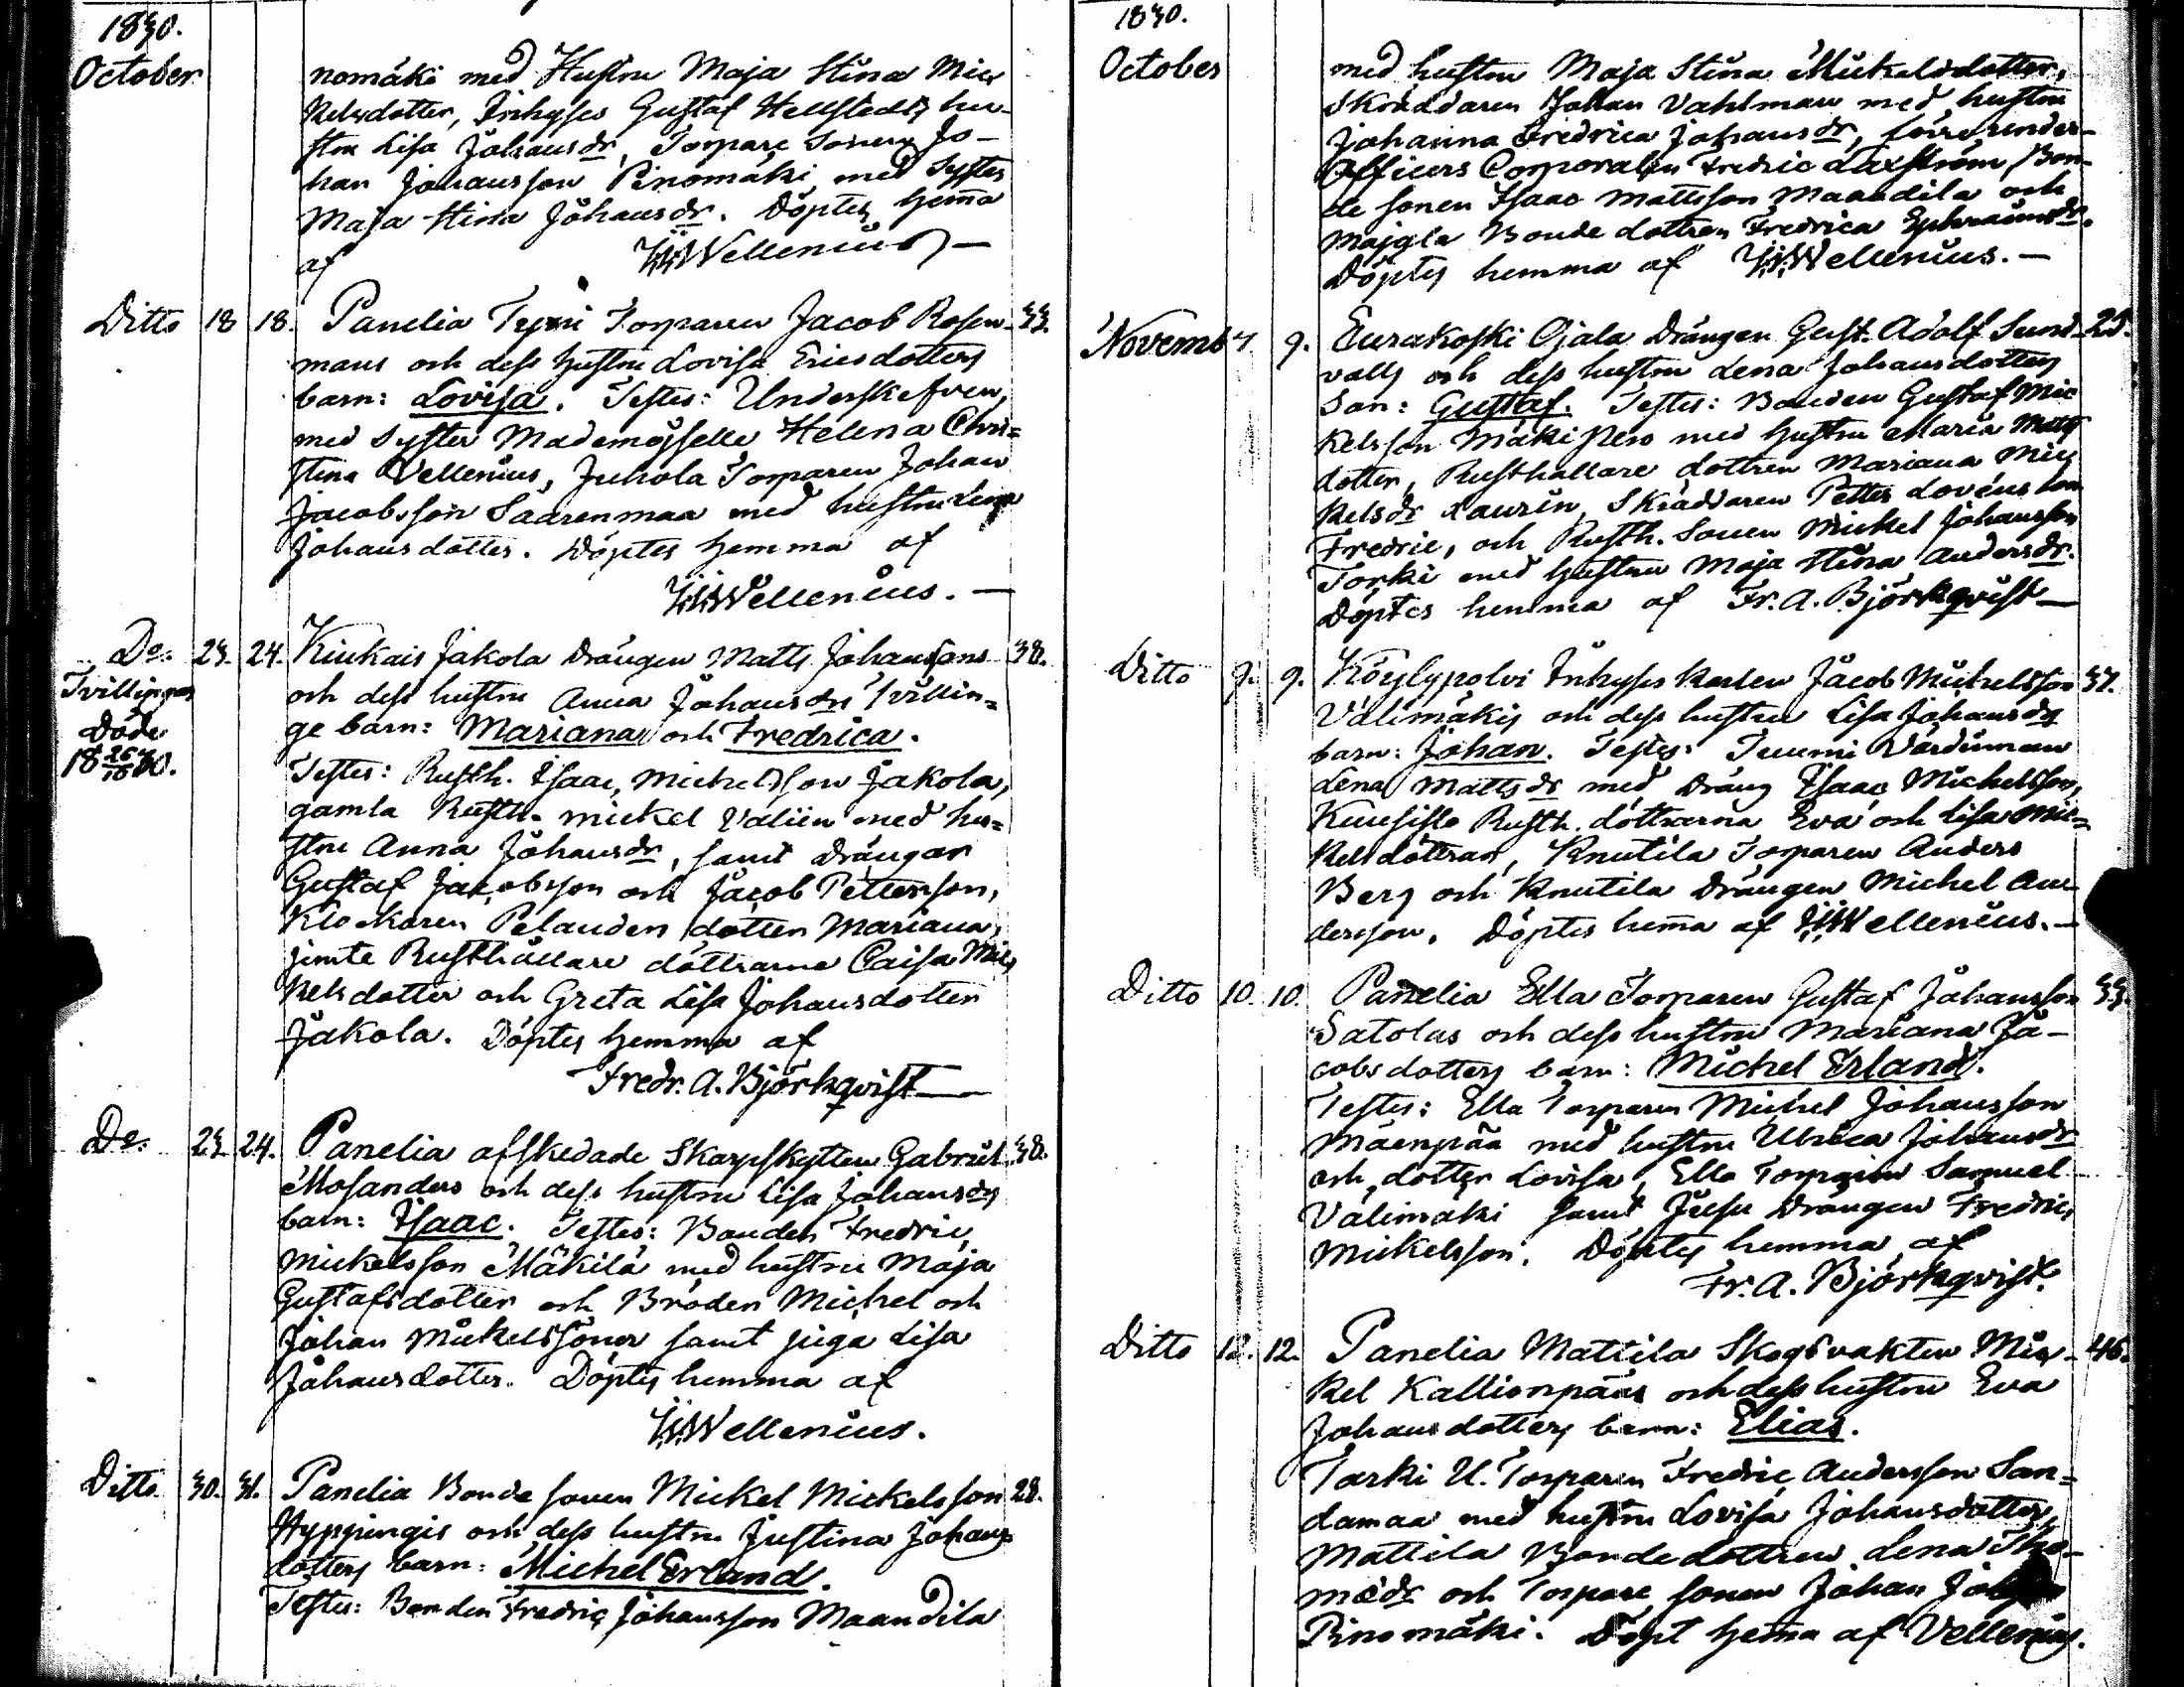 1830.
October
nomäki med Hustru Maja Stina Mic
kelsdotter, Inhyses Gustaf Hellstedts hu-
stru Lisa Johansdr, Torpare Sonen Jo-
han Johansson Pinomäki med Syster
Maja Stina Johansdr. Döptes hemma
af WVellenius
Ditto 18 18. Panelia Tyni Torparen Jacob Rosen- 33.
mans och dess hustru Lovisa Ericsdotters
barn: Lovisa. Testes: Underskefven,
med Syster Mademoiselle Helena Chri=
stina Vellenius, Juhola Torparen Johan
Jacobsson Saarenmaa med hustru Lena
Johansdotter. Döptes hemma af
Vellenius.
Do. 23. 24. Kiukais Jakola Drängen Matts Johanssons 38.
Tvillingar
och dess hustru Anna Johansdrs Tvillin=
Döde
ge barn: Mariana och Fredrica.
18 26/10 30.
Testes: Rusth. Isaac Michelsson Jakola,
gamla Rusth. Mickel Valiin med hu=
stru Anna Johansdr, samt Drängar
Gustaf Jacobsson och Jacob Pettersson,
Klockaren Pelanden dotter Mariana,
jemte Rusthållare döttrarne Caisa Mic
kelsdotter och Greta Lisa Johansdotter
Jakola. Döptes hemma af
Fredr. A. Björkqvist
Do. 23 24. Panelia afskedade Skarpskytten Gabriel 30.
Mosanders och dess hustru Lisa Johansdrs
barn: Isaac. Testes: Bonden Fredric
Mickelsson Mäkilä med hustru Maja
Gustafsdotter och Bröder Michel och
Johan Mickelssöner samt piga Lisa
Johansdotter. Döptes hemma af
Vellenius.
Ditto 30. 31. Panelia Bonde sonen Mickel Mickelsson 28.
Hyppingis och dess hustru Justina Johans
dotters barn: Michel Erland.
Testes: Bonden Fredric Johansson Maandila
1830.
October
med hustru Maja Stina Mickelsdotter,
Skräddaren Johan Vahlman med hustru
Johanna Fredrica Johansdr, förre under-
Officers Corporalen Fredric Laxström, Bon-
de sonen Isaac Mattsson Maandila och
Bonde dottren Fredrica Ephraimsdr.
Döptes hemma af Vellenius.
Novemb 7. 9. Eurakoski Ojala Drängen Gust. Adolf Sund- 25.
valls och dess hustru Lena Johansdotters
Son: Gustaf. Testes: Bonden Gustaf Mic
kelsson Mäkipero med hustru Maria Matts
dotter, Rusthållare dottren Mariana Mic
kelsdr Laurin, Skräddaren Petter Lovéns son
Fredric, och Rusth. Sonen Mickel Johansson
Torki med hustru Maja Stina Andersdr.
Döptes hemma af Fr. A. Björkqvist
Ditto 7. 9. Köylypolvi Inhyses Karlen Jacob Mickelsson 37.
Välimäkis och dess hustru Lisa Johansdrs
barn: Johan. Testes: Tuumi Värdinnan
Lena Mattsdr med Dräng Isaac Michelsson,
Kuusisto Rusth. döttrarna Eva och Lisa Mic=
kelsdöttrar, Knutila Torparen Anders
Berg och Knutila Drängen Michel An-
dersson. Döptes hemma af Vellenius.
Ditto 10. 10. Panelia Ella Torparen Gustaf Johansson 33.
Satolas och dess hustru Mariana Ja-
cobsdotters barn: Michel Erland.
Testes: Ella Torparen Michel Johansson
Mäenpää med hustru Ulrica Johansdr
och dotter Lovisa, Ella Torparen Samuel
Välimäki samt Drängen Fredric
Mickelsson. Döptes hemma af
Fr. A. Björkqvist.
Ditto 12. 12. Panelia Mattila Skogsvakten Mic- 46.
kel Kallionpääs och dess hustru Eva
Johansdotters barn: Elias.
Torki U. Torparen Fredric Andersson San=
damaa med hustru Lovisa Johansdotter,
Mattila Bonde dottren Lena Tho-
madr och Torpare sonen Johan
Pinomäki. Döpt hemma af Vellenius.